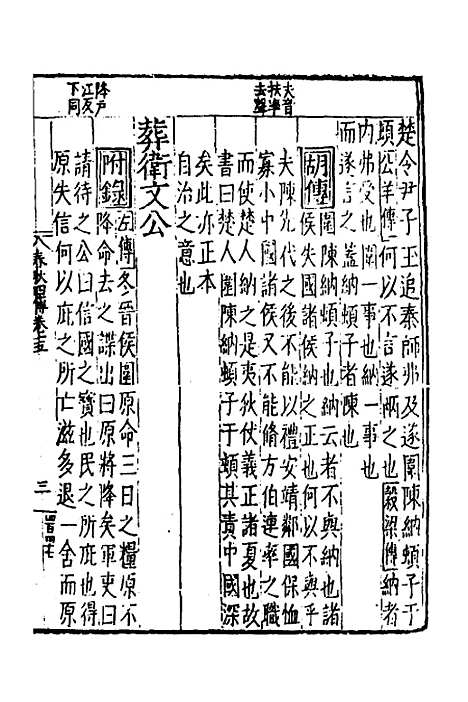 夫音
扶率
去聲
降戶
江反
下同
楚令尹子玉追秦師弗及遂圍陳納頓子于
頓公羊傳何以不言遂兩之也穀梁傳納者
内弗受也圍一事也納一事也
而遂言之蓋納頓子者陳也
胡傳圍陳納頓子也納云者不與納也諸
侯失國諸侯納之正也何以不與乎
夫陳先代之後不能以禮安靖鄰國保恤
寡小中國諸侯又不能脩方伯連率之職
而使楚人納之是夷狄伏義正諸夏也故
書曰楚人圍陳納頓子于頓其責中國深
矣此亦正本
自治之意也
葬衛文公
附錄左傳冬晉侯圍原命三日之糧原不
降命去之諜出曰原將降矣軍吏曰
請待之公曰信國之寶也民之所庇也得
原失信何以庇之所亡滋多退一舍而原
春秋四傳卷十五
三